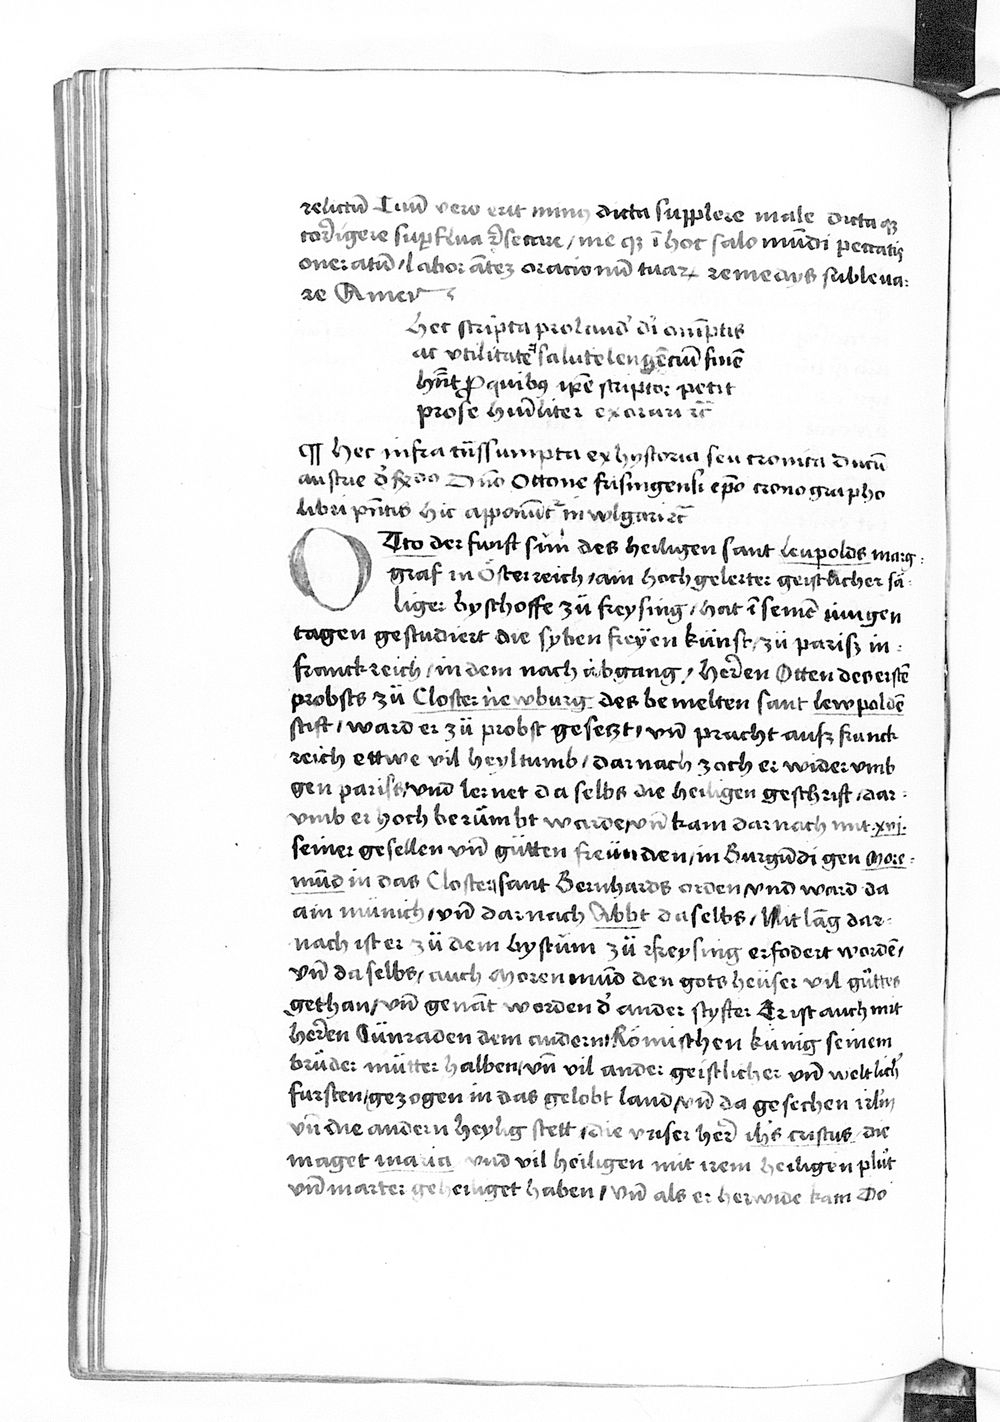 relictũ Tuũ vero erit minꝰ dicta supplere male dicta qꝫ
corrigere suꝑflua r̃secare / me qꝫ ĩ hoc salo mũdi peccatis
oneratũ / laborãtẽ oracionũ tuaꝝ remedys subleua:
re Amen
Hec scripta pro laud' d'i om̃iptis
ac vtilitatẽ salutẽ legẽciũ finẽ
hñt Pro quibꝰ ip̃e scriptor petit
pro se hũiliter exorari ꝛc̃
¶ Hec infra assumpta ex hystoria seu cronica ducũ
austrie d' Dño Ottone frisingensi ep̃o cronographo
libri p̃ntis hic apponũt᷑ in wlgari ꝛc̃
OTto der furst sun des heiligen sant leupolds marg:
graf in Österreich / ain hochgelerter geistlicher sä:
liger byschoffe zü freysing / hat ĩ seinẽ iungen
tagen gestudiert die syben freÿen künst / zü pariß in:
franckreich / in dem nach abgang / herren Otten des erstẽ
probsts zü Closternewburg des bemelten sant lewpoldẽ
stift / ward er zü probst gesetzt / vñ pracht auß franck
reich ettwe vil heyltumb / darnach zoch er wider vmb
gen pariß / vnd lernet da selbs die heiligen geschrift / dar:
vmb er hoch berümbt warde / vñ kam darnach mit .xvj.
seiner gesellen vñ gütten freünden / in Burgũdi gen More:
mũd in das Closter sant Bernhards orden / vnd ward da
ain münich / vñ darnach Abbt daselbs / Mit lãg dar:
nach ist er zü dem bystüm zü freysing erfodert wordẽ /
vñ daselbs / auch Morenmũd den gotsheüser vil güttes
gethan / vñ genãt worden d' ander styfter Er ist auch mit
herren Cünraden dem andern / Römischen künig seinem
brüder mütter halben / vñ vil ander geistlicher vñ weltlich'
fursten / gezogen in das gelobt land / vñ da gesechen
vñ die andern heylig stett / die vnser herr ih̃s cristus die
maget maria vnd vil heiligen mit irem heiligen plüt
vñ marter geheiliget haben / vñ als er herwide kam Do